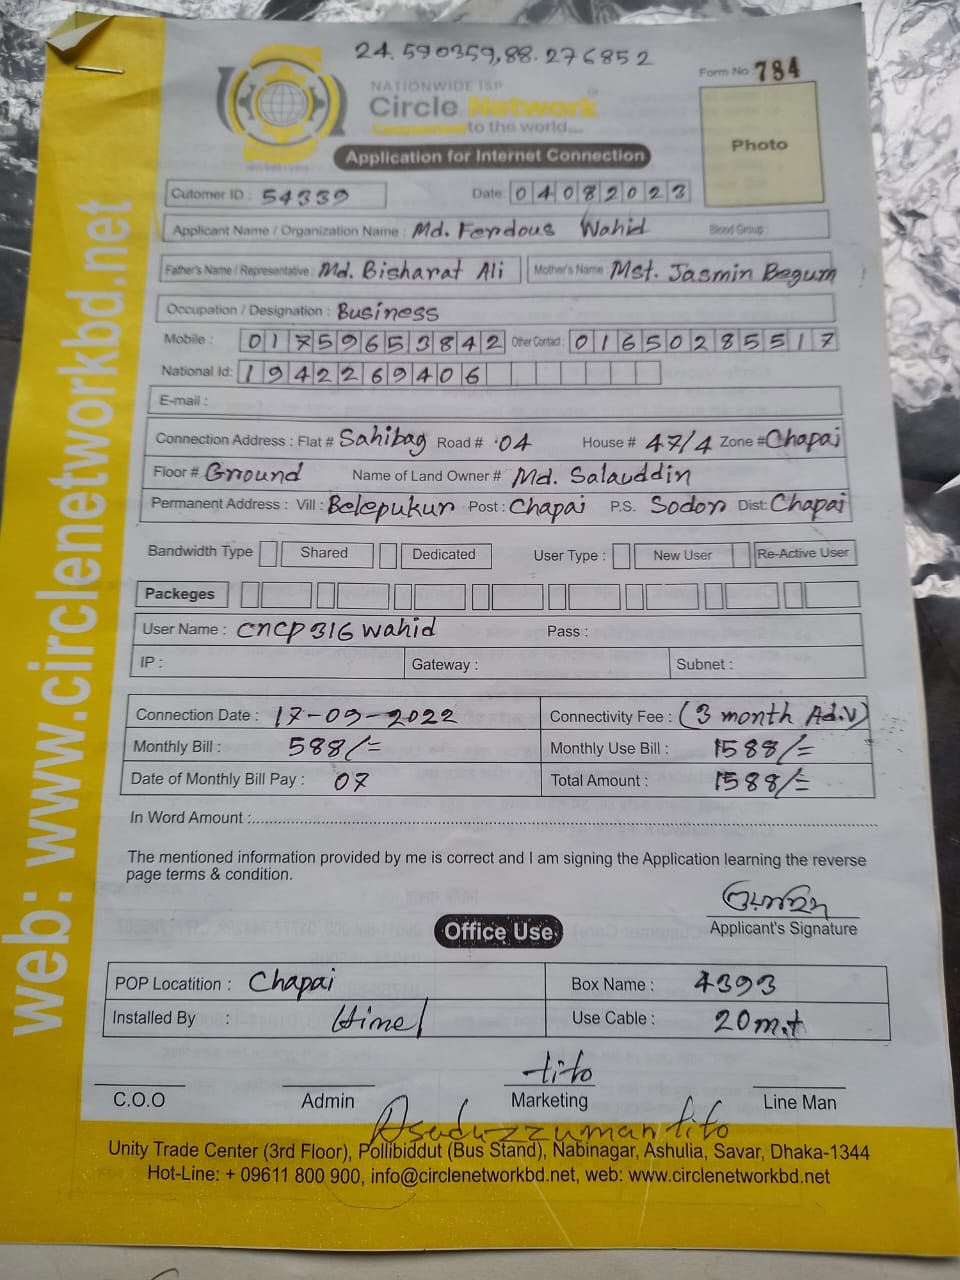 24.590359,88.276852
Form No: 784
NATIONWIDE ISP
Circle Network
Connected to the world....
Photo
Application for Internet Connection
Cutomer ID : 54339 Date: 04082023
Applicant Name / Organization Name : Md. Ferdous Wahid Blood Group :
Father's Name / Representative : Md. Bisharat Ali Mother's Name Mst. Jasmin Begum
Occupation / Designation : Business
Mobile : 01759653842 Other Contact : 01650285517
National Id: 1942269406
E-mail :
Connection Address : Flat # Sahibag Road # 04 House # 47/4 Zone # Chapai
Floor # Ground Name of Land Owner # Md. Salauddin
Permanent Address : Vill : Belepukur Post : Chapai P.S. Sodor Dist: Chapai
Bandwidth Type Shared Dedicated User Type : New User Re-Active User
Packeges
User Name : cncp316wahid Pass :
IP : Gateway : Subnet :
Connection Date : 17-09-2022 Connectivity Fee : (3 month Adv)
Monthly Bill : 588/= Monthly Use Bill : 1588/=
Date of Monthly Bill Pay : 07 Total Amount : 1588/=
In Word Amount :
The mentioned information provided by me is correct and I am signing the Application learning the reverse
page terms & condition.
Applicant's Signature
Office Use
POP Locatition : Chapai Box Name : 4393
Installed By : Himel Use Cable : 20m.t
tito
C.O.O Admin Marketing Line Man
Asaduzzuman tito
Unity Trade Center (3rd Floor), Pollibiddut (Bus Stand), Nabinagar, Ashulia, Savar, Dhaka-1344
Hot-Line: + 09611 800 900, info@circlenetworkbd.net, web: www.circlenetworkbd.net
web: www.circlenetworkbd.net